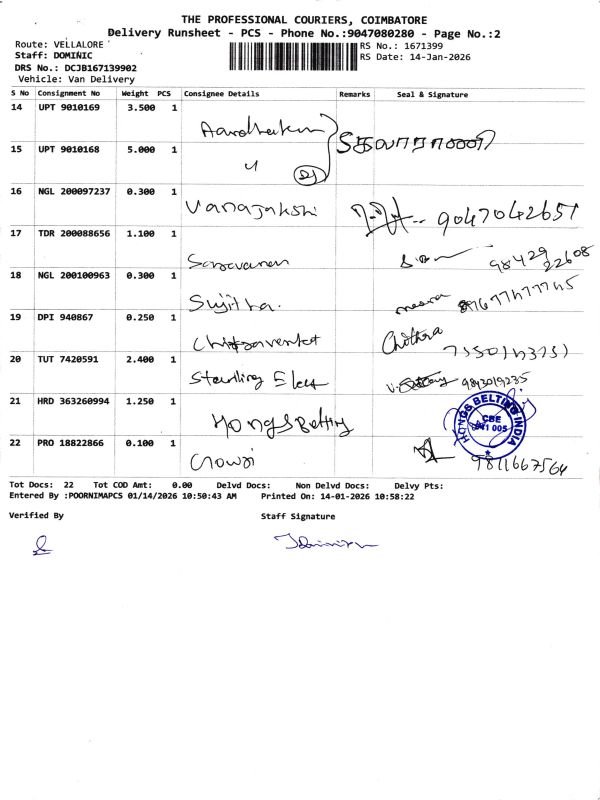 THE PROFESSIONAL COURIERS, COIMBATORE
Delivery Runsheet - PCS - Phone No.:9047080280 - Page No.:2
Route: VELLALORE
Staff: DOMINIC
DRS No.: DCJB167139902
Vehicle: Van Delivery
RS No.: 1671399
RS Date: 14-Jan-2026
S No Consignment No Weight PCS Consignee Details Remarks Seal & Signature
14 UPT 9010169 3.500 1
15 UPT 9010168 5.000 1
16 NGL 200097237 0.300 1 Vanajakshi 9047042657
17 TDR 200088656 1.100 1 Saravanan 98429 22608
18 NGL 200100963 0.300 1 Sujitha. meera
19 DPI 940867 0.250 1 Chitravenkat Chithra
20 TUT 7420591 2.400 1 Starling Elect 9843019235
21 HRD 363260994 1.250 1 Hongs Belting HONGS BELTING INDIA CBE 641 005
22 PRO 18822866 0.100 1 Gowri 9811667564
Tot Docs: 22 Tot COD Amt: 0.00 Delvd Docs: Non Delvd Docs: Delvy Pts:
Entered By :POORNIMAPCS 01/14/2026 10:50:43 AM Printed On: 14-01-2026 10:58:22
Verified By Staff Signature